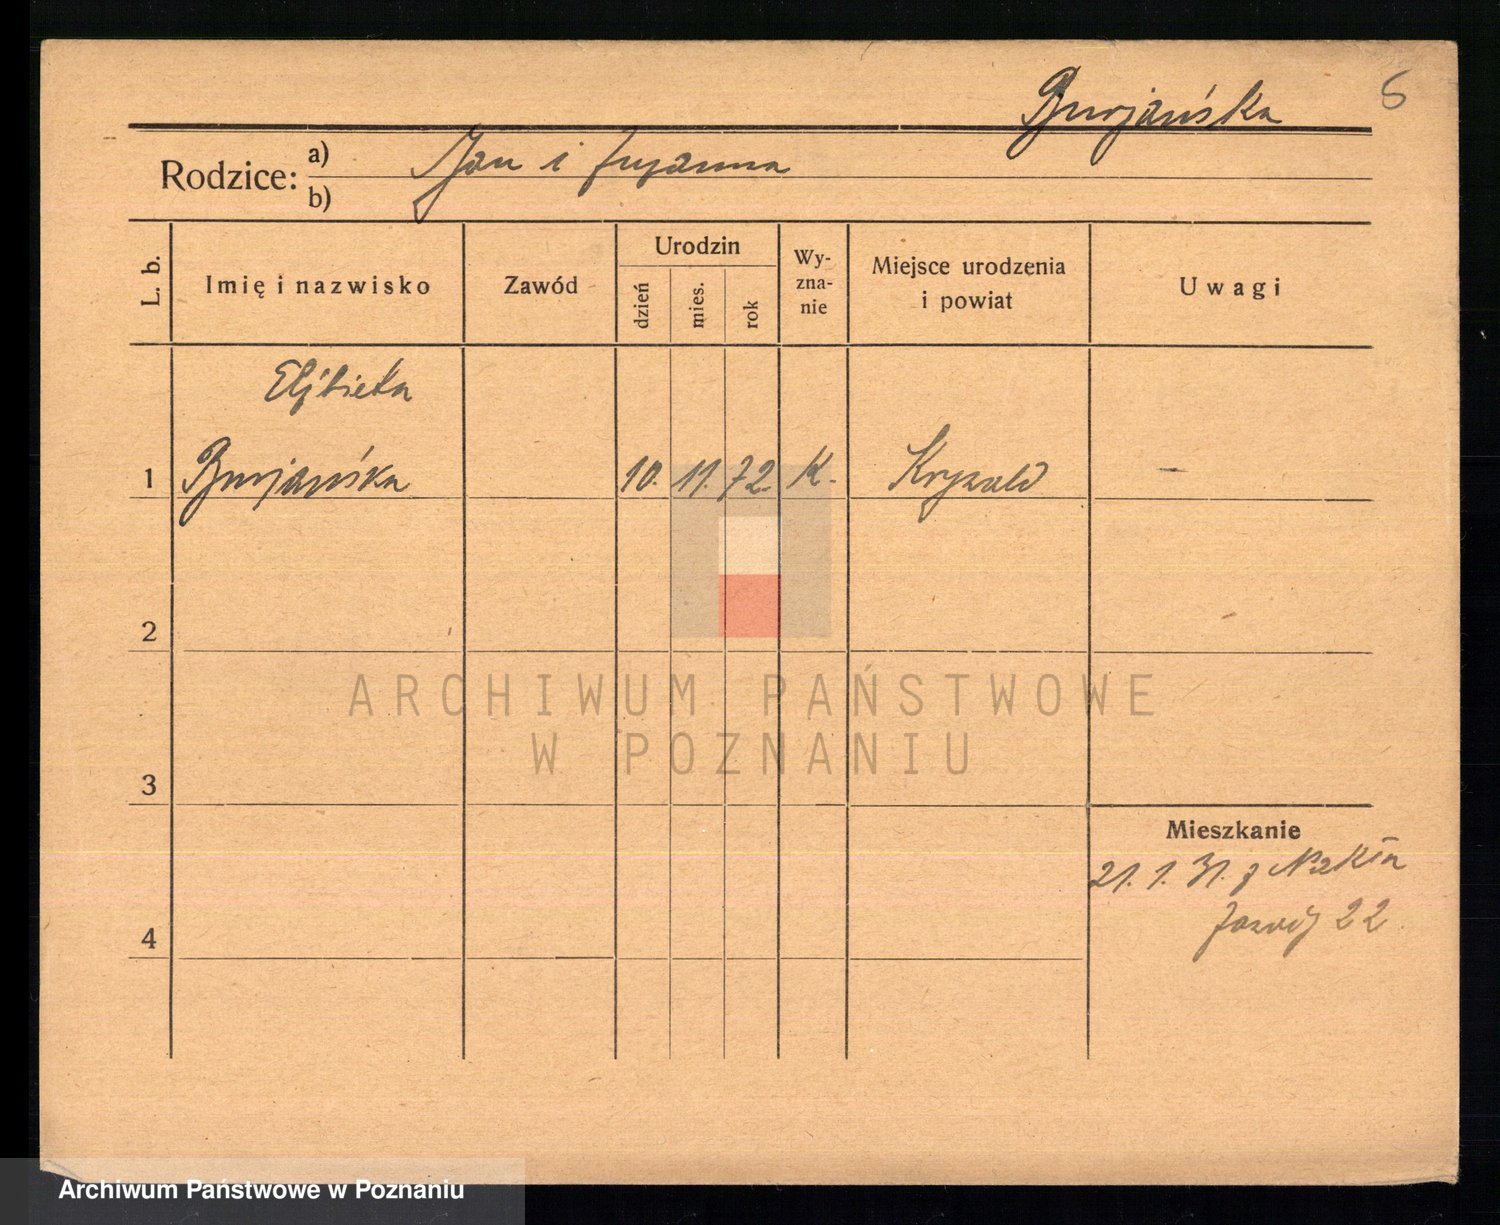 Burjańska 6
Rodzice: a) Jan i Zuzanna
b)
L. b. Imię i nazwisko Zawód Urodzin dzień mies. rok Wy-zna-nie Miejsce urodzenia i powiat Uwagi
Elżbieta
1 Burjańska 10. 11. 72. K. Kryzald –
2
ARCHIWUM PAŃSTWOWE
W POZNANIU
3
Mieszkanie
21. 1. 31. z Nakła
4 22
Archiwum Państwowe w Poznaniu